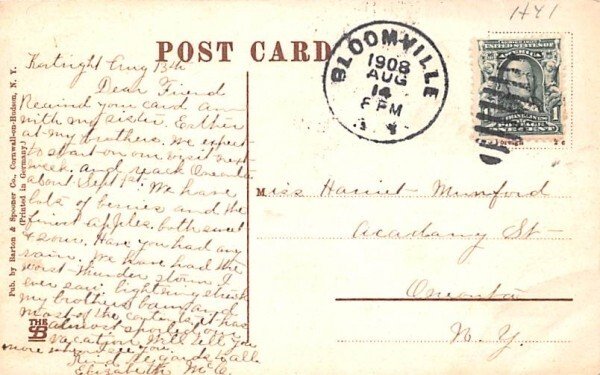 H41
POST CARD
BLOOMVILLE
1908
AUG
14
PM
Kortright Aug 13th
Dear Friend
Received you card am
with my sister, Esther
at my brothers. We expect
to start on our visit next
week, and reach Oneonta
about Sept 1st. We have
lots of berries and the
finest apples. both sweet
& sour. Have you had any
rain. We have had the
worst thunder storm I
ever saw. lightening struck
my brothers barn and
most of the it has
almost spoiled our
vacation. Will tell you
more when see you
Kind regards to all
Elizabeth Mc
Miss Harriet Mumford
Academy St
Oneonta
N. Y.
Pub. by Barton & Spooner Co., Cornwall-on-Hudson, N. Y.
(Printed in Germany.)
THE
SB
UNITED STATES OF
AMERICA
FRANKLIN
POSTAGE
ONE CENT
1